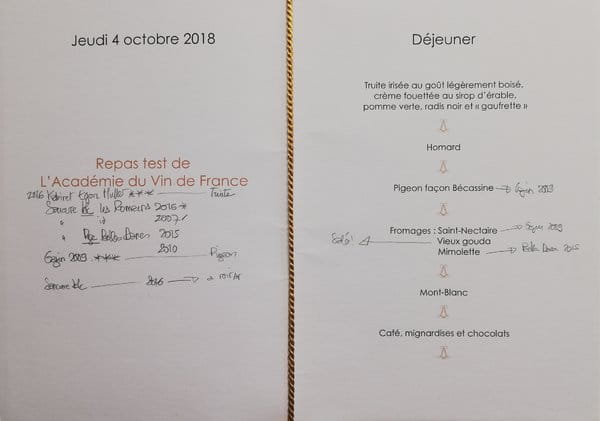 Jeudi 4 octobre 2018
Repas test de
L'Académie du Vin de France
2016 Kabinet Egon Muller *** Truite
Sancerre les Romains 2016 *
" 2007
" Belles Dames 2015
2010
2009 *** Pigeon
Sancerre 2016
Déjeuner
Truite irisée au goût légèrement boisé,
crème fouettée au sirop d'érable,
pomme verte, radis noir et « gaufrette »
Homard
Pigeon façon Bécassine 2009
Fromages : Saint-Nectaire 2009
Salé! Vieux gouda
Mimolette Belles Dames 2015
Mont-Blanc
Café, mignardises et chocolats